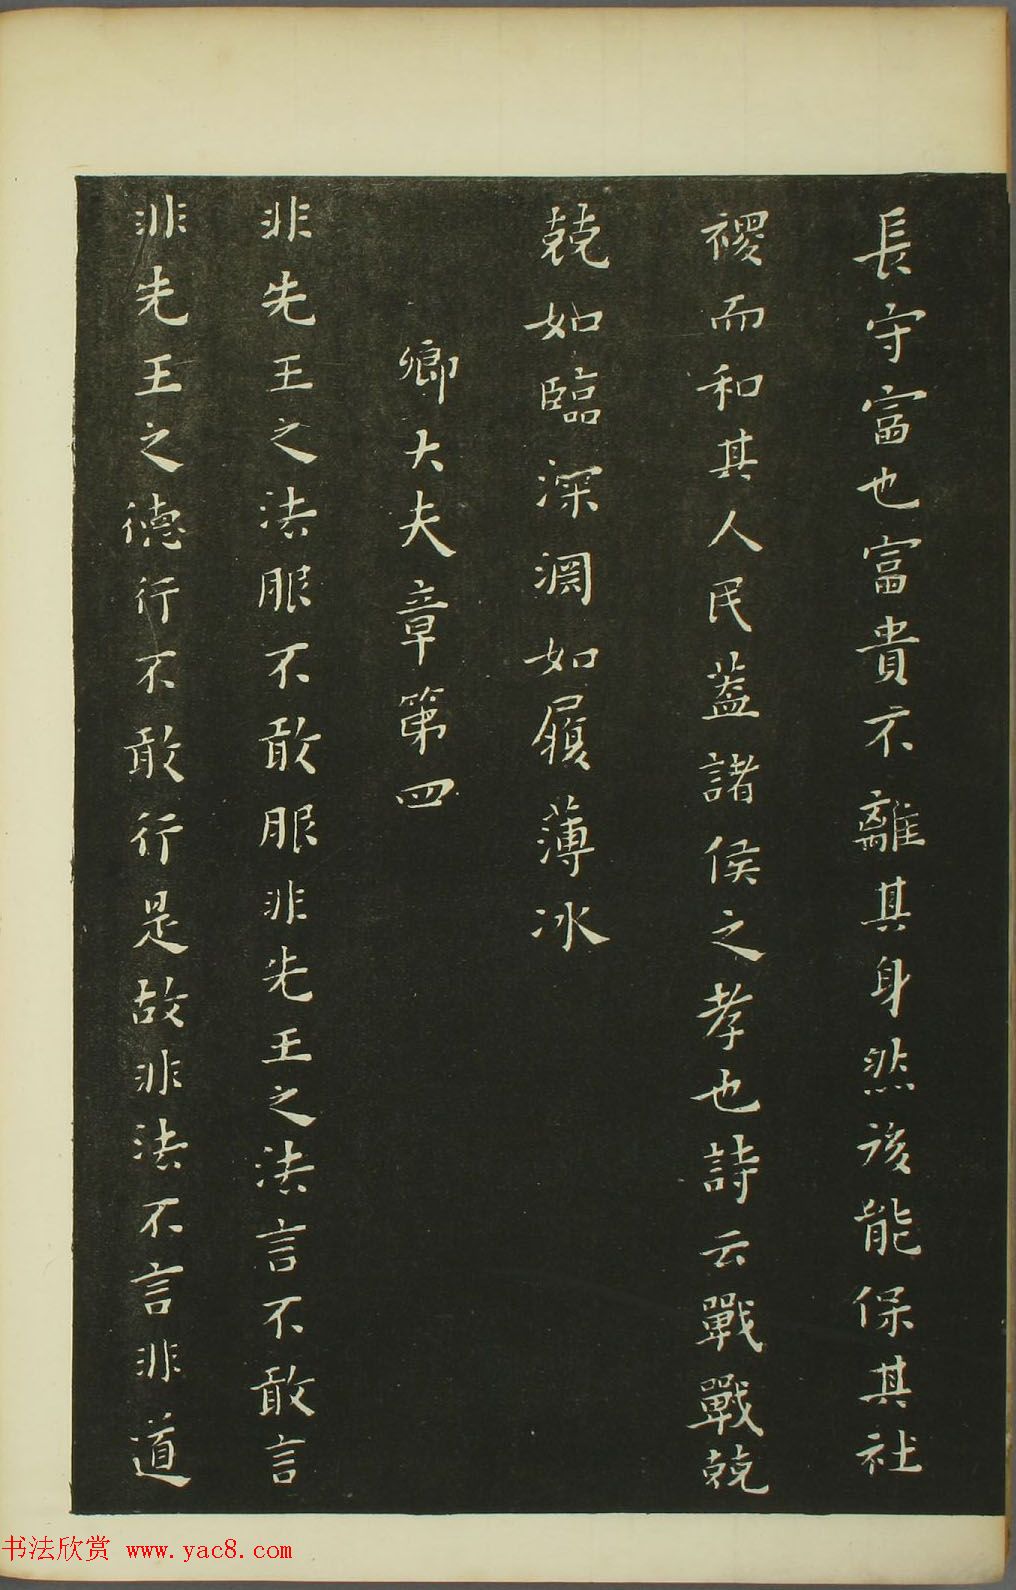 長守富也富貴不離其身然後能保其社
稷而和其人民蓋諸侯之孝也詩云戰戰兢
兢如臨深淵如履薄冰
卿大夫章第四
非先王之法服不敢服非先王之法言不敢言
非先王之德行不敢行是故非法不言非道
书法欣赏 www.yac8.com